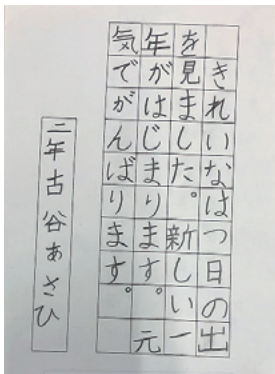 きれいなはつ日の出
を見ました。新しい一
年がはじまります。元
気でがんばります。
二年古谷あさひ